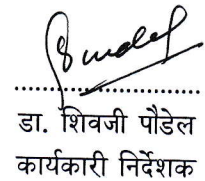 डा. शिवजी पौडेल
कार्यकारी निर्देशक